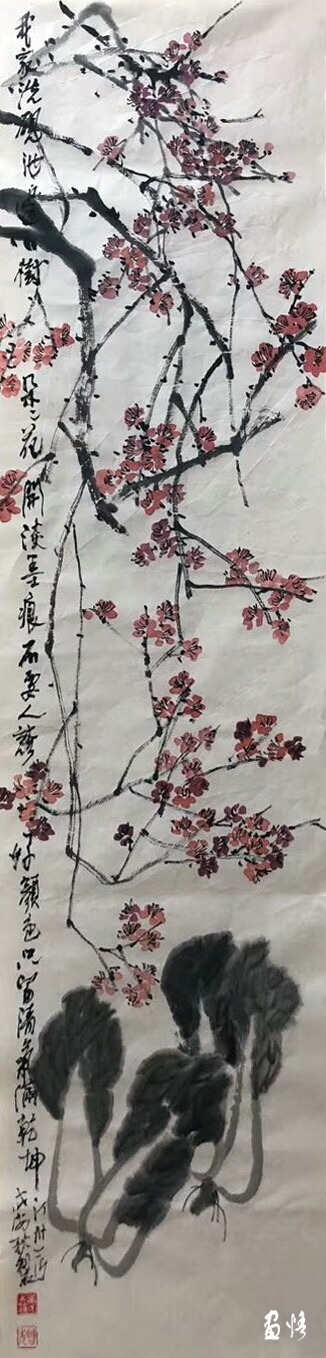 我家洗砚池边树
朵朵花开淡墨痕不要人誇好颜色只留清气满乾坤
画悟